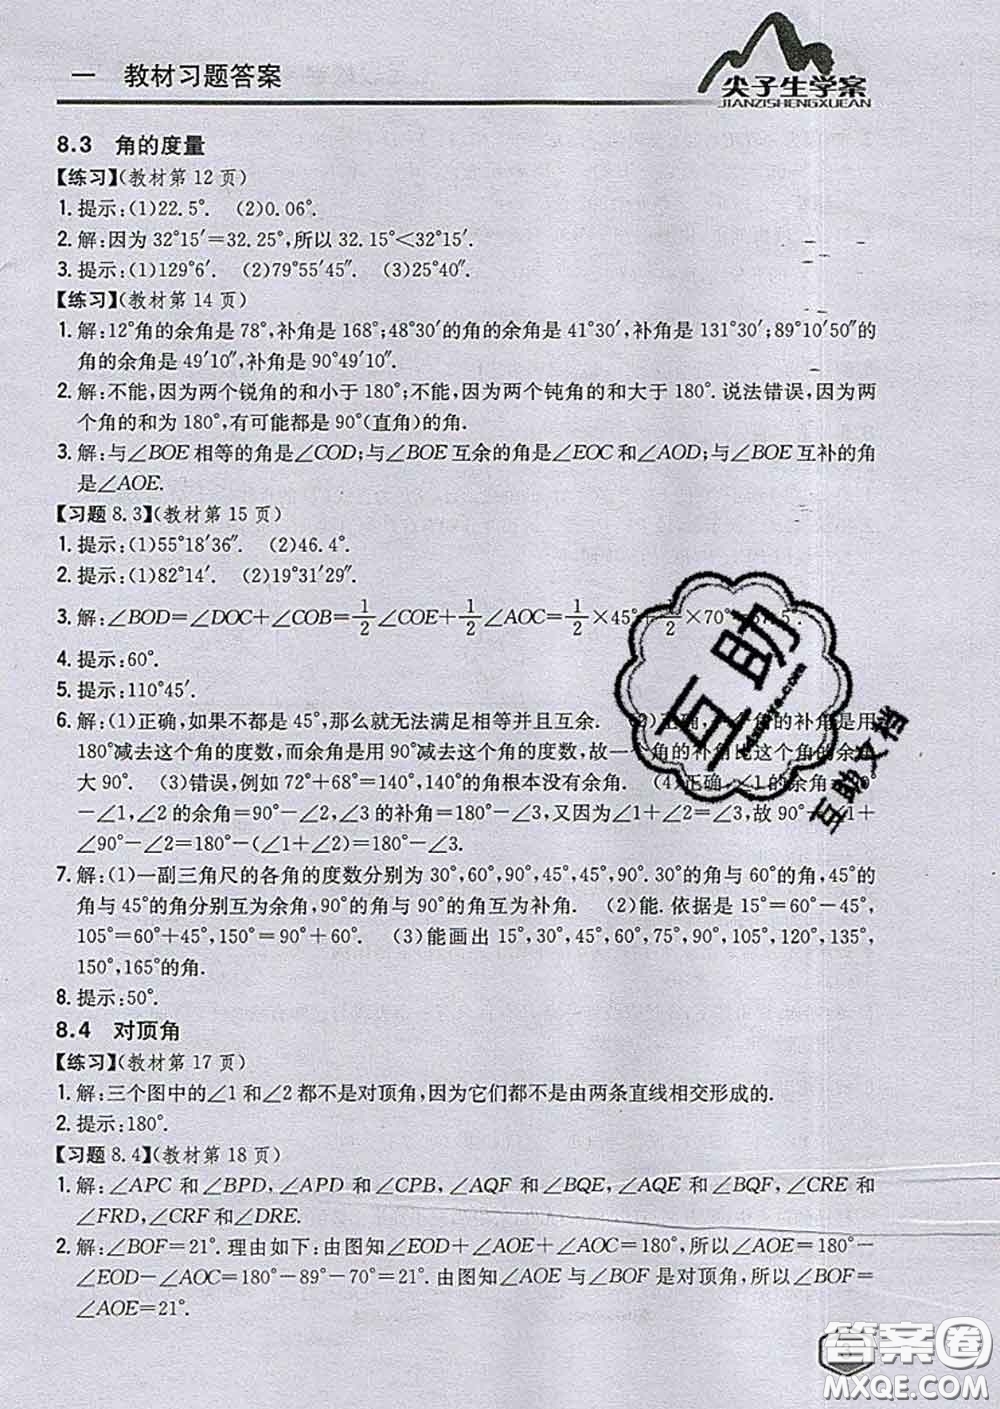 一 教材习题答案
尖子生学案
JIANZISHENGXUEAN
8.3 角的度量
【练习】(教材第12页)
1. 提示:(1)22.5°. (2)0.06°.
2. 解:因为32°15′=32.25°,所以32.15°<32°15′.
3. 提示:(1)129°6′. (2)79°55′45″. (3)25°40″.
【练习】(教材第14页)
1. 解:12°角的余角是78°,补角是168°;48°30′的角的余角是41°30′,补角是131°30′;89°10′50″的
角的余角是49′10″,补角是90°49′10″.
2. 解:不能,因为两个锐角的和小于180°;不能,因为两个钝角的和大于180°.说法错误,因为两
个角的和为180°,有可能都是90°(直角)的角.
3. 解:与∠BOE相等的角是∠COD;与∠BOE互余的角是∠EOC和∠AOD;与∠BOE互补的角
是∠AOE.
【习题8.3】(教材第15页)
1. 提示:(1)55°18′36″. (2)46.4°.
2. 提示:(1)82°14′. (2)19°31′29″.
3. 解:∠BOD=∠DOC+∠COB=1/2∠COE+1/2∠AOC=1/2×45°+1/2×70°
4. 提示:60°.
5. 提示:110°45′.
6. 解:(1)正确,如果不都是45°,那么就无法满足相等并且互余. (2)正确,一个角的补角是用
180°减去这个角的度数,而余角是用90°减去这个角的度数,故一个角的补角比这个角的余角
大90°. (3)错误,例如72°+68°=140°,140°的角根本没有余角. (4)正确.∠1的余角=90°
-∠1,∠2的余角=90°-∠2,∠3的补角=180°-∠3,又因为∠1+∠2=∠3,故90°-∠1+
∠90°-∠2=180°-(∠1+∠2)=180°-∠3.
7. 解:(1)一副三角尺的各角的度数分别为30°,60°,90°,45°,45°,90°.30°的角与60°的角,45°的
角与45°的角分别互为余角,90°的角与90°的角互为补角. (2)能.依据是15°=60°-45°,
105°=60°+45°,150°=90°+60°. (3)能画出15°,30°,45°,60°,75°,90°,105°,120°,135°,
150°,165°的角.
8. 提示:50°.
8.4 对顶角
【练习】(教材第17页)
1. 解:三个图中的∠1和∠2都不是对顶角,因为它们都不是由两条直线相交形成的.
2. 提示:180°.
【习题8.4】(教材第18页)
1. 解:∠APC和∠BPD,∠APD和∠CPB,∠AQF和∠BQE,∠AQE和∠BQF,∠CRE和
∠FRD,∠CRF和∠DRE.
2. 解:∠BOF=21°.理由如下:由图知∠EOD+∠AOE+∠AOC=180°,所以∠AOE=180°-
∠EOD-∠AOC=180°-89°-70°=21°.由图知∠AOE与∠BOF是对顶角,所以∠BOF=
∠AOE=21°.
互助
互助文档
答案卷
MXQE.COM